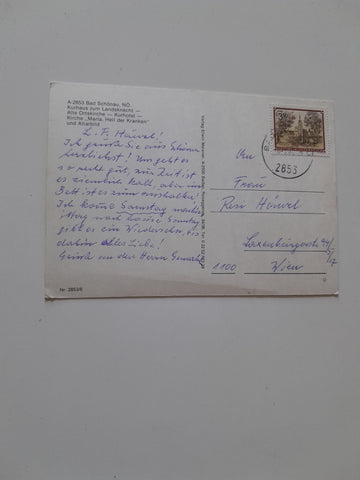 A-2853 Bad Schönau, NÖ.
Kurhaus zum Landsknecht —
Alte Ortskirche — Kurhotel —
Kirche „Maria, Heil der Kranken"
und Altarbild
L. F. Häusel!
Ich grüße Sie aus Schönau
herzlichst! Uns geht es
so recht gut, zur Zeit ist
es ziemlich kalt, aber im
Bett ist es zum aushalten!
Ich komme Samstag
Mittag nach Hause Samstag
gibt es ein Wiedersehn, bis
dahin alles Liebe!
Gruß an den Herrn Gemahl
Nr. 2853/6
Verlag
2853
An
Frau
Resi Häusel
Laxenburgerstr
1100 Wien